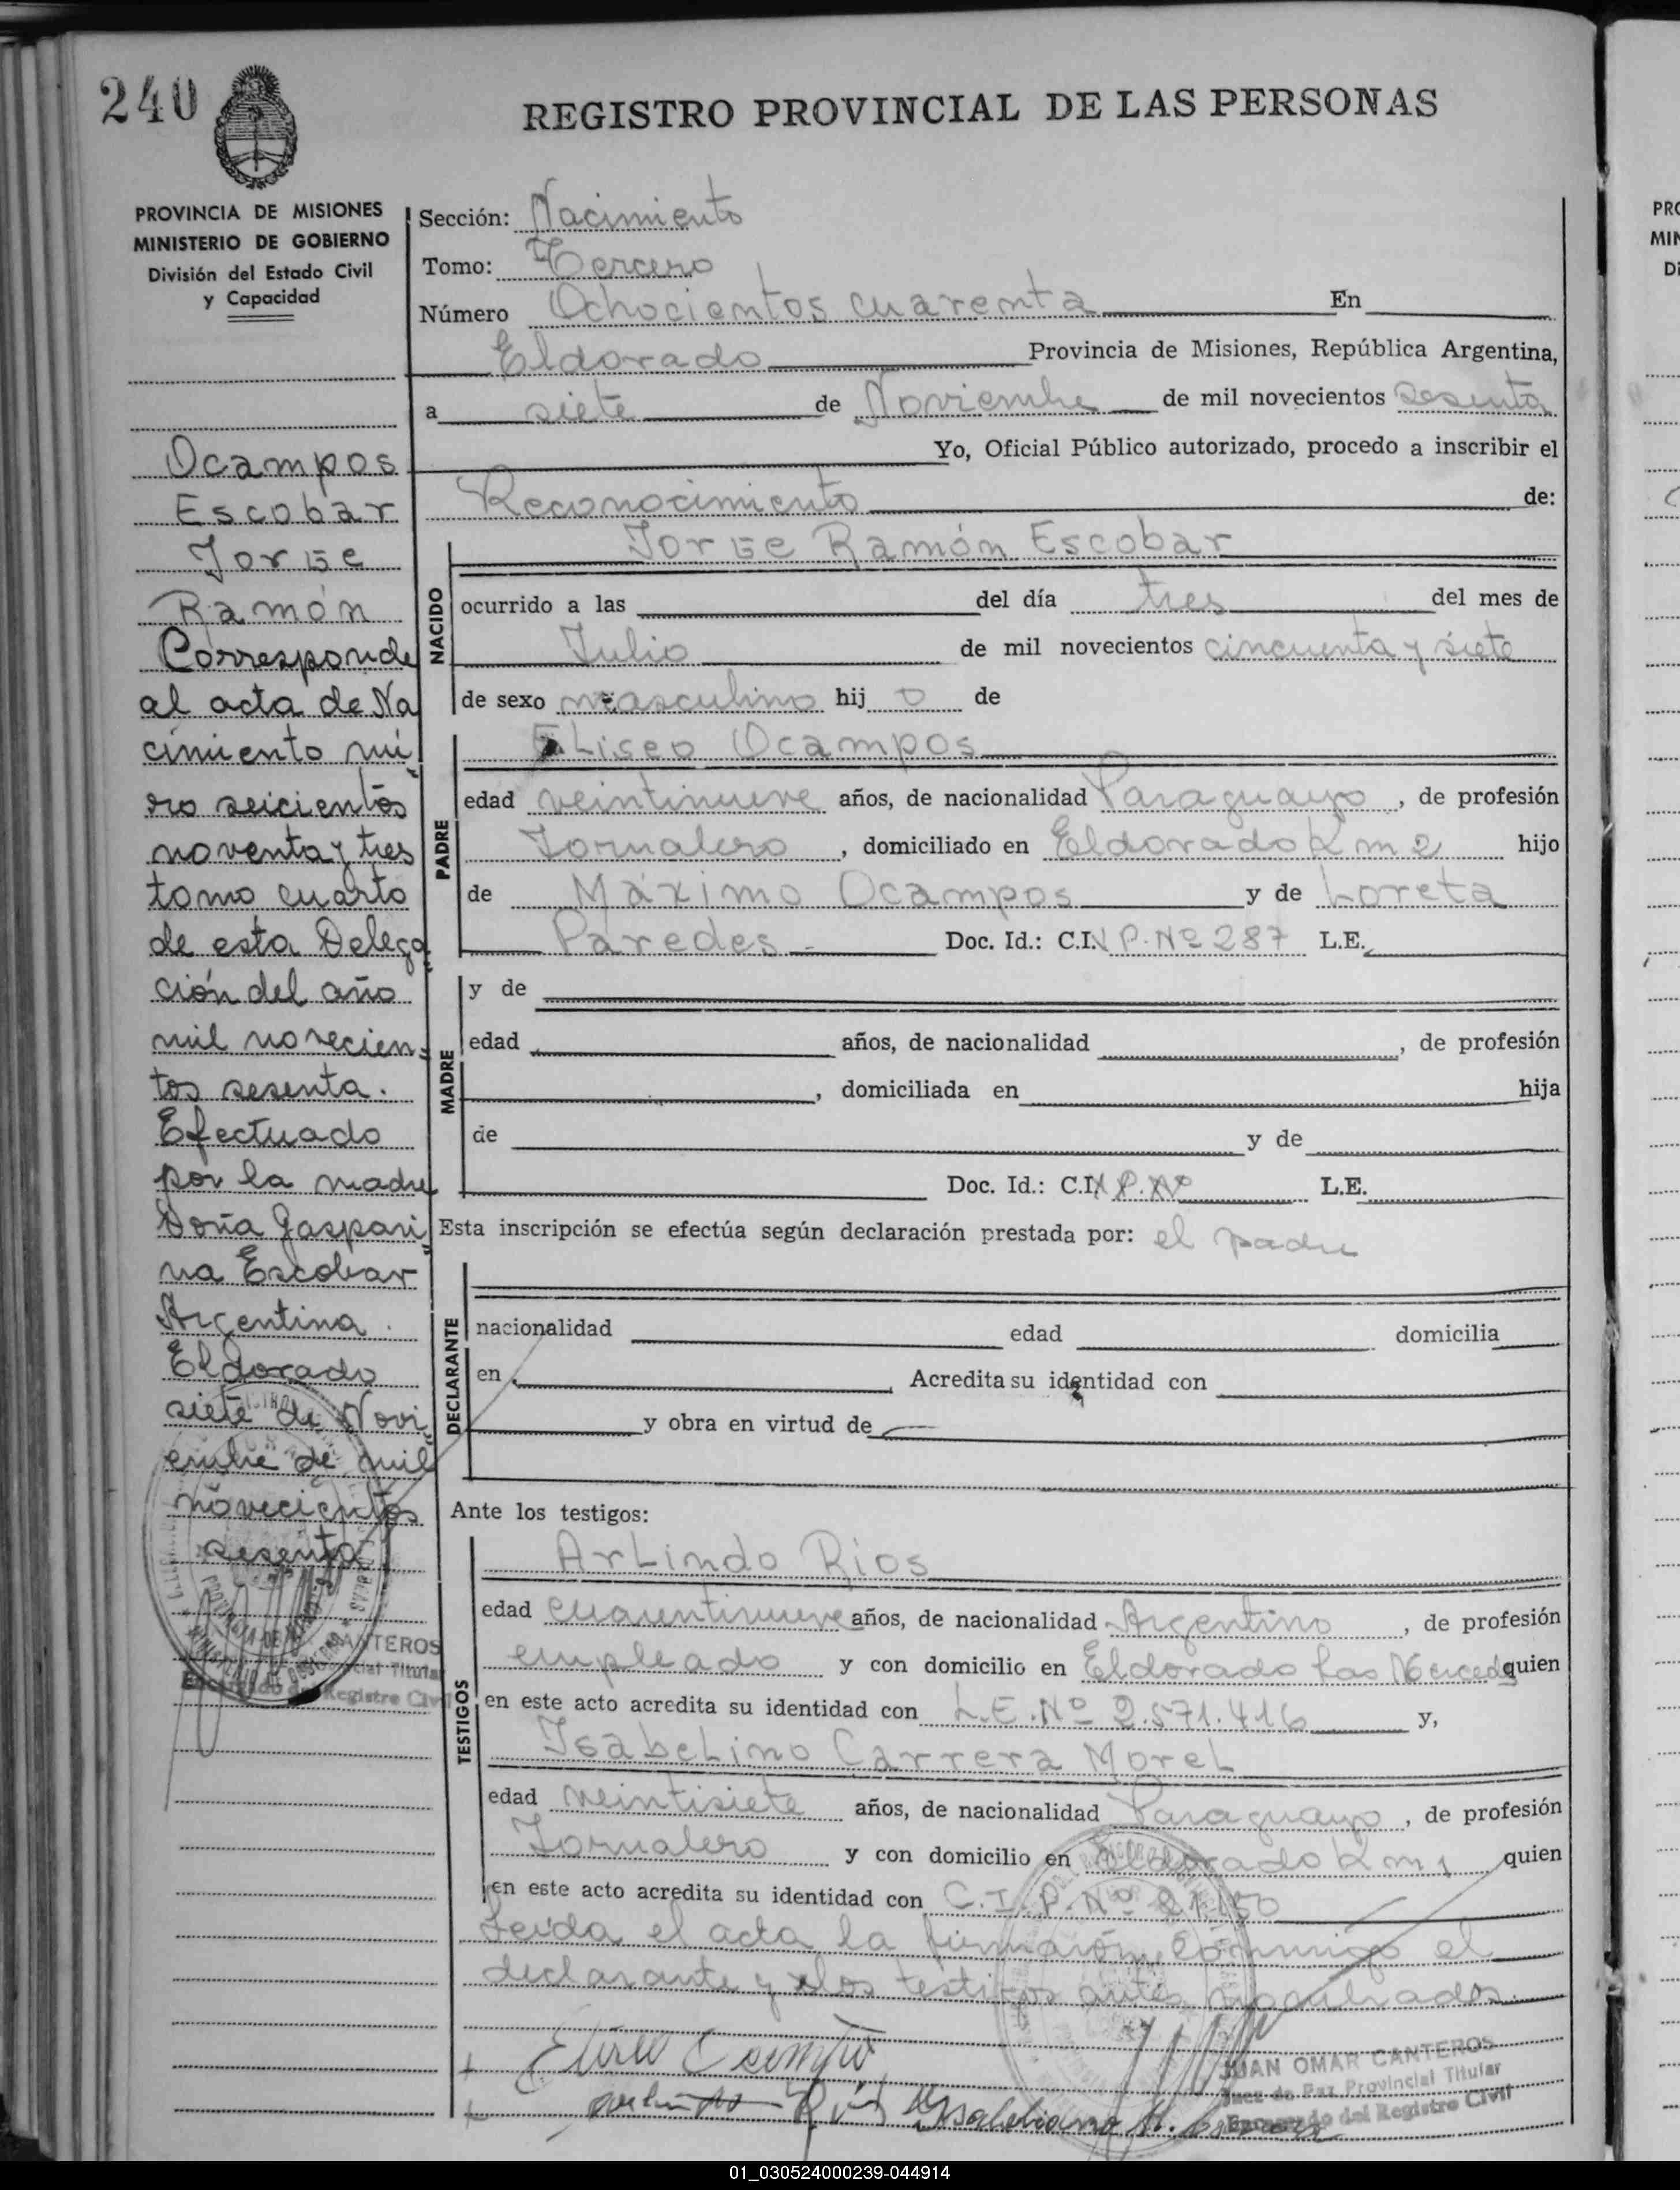 240
REGISTRO PROVINCIAL DE LAS PERSONAS
PROVINCIA DE MISIONES
MINISTERIO DE GOBIERNO
División del Estado Civil
y Capacidad
Ocampos
Escobar
Jorge
Ramón
Corresponde
al acta de Na
cimiento nú
ro seicientos
noventa y tres
tomo cuarto
de esta Delega
ción del año
mil novecien
tos sesenta.
Efectuado
por la madre
Doña Gaspari
na Escobar
Argentina.
Eldorado
siete de Novi
embre de mil
novecientos
sesenta
Sección: Nacimiento
Tomo: Tercero
Número Ochocientos cuarenta En
Eldorado Provincia de Misiones, República Argentina,
a siete de Noviembre de mil novecientos sesenta
Yo, Oficial Público autorizado, procedo a inscribir el
Reconocimiento de:
NACIDO
Jorge Ramón Escobar
ocurrido a las del día tres del mes de
Julio de mil novecientos cincuenta y siete
de sexo masculino hij o de
PADRE
Eliseo Ocampos
edad veintinueve años, de nacionalidad Paraguayo, de profesión
Jornalero, domiciliado en Eldorado Km 2 hijo
de Máximo Ocampos y de Loreta
Paredes - Doc. Id.: C.I. P. Nº 287 L.E.
MADRE
y de
edad años, de nacionalidad , de profesión
, domiciliada en hija
de y de
Doc. Id.: C.I. P. Nº L.E.
Esta inscripción se efectúa según declaración prestada por: el padre
DECLARANTE
nacionalidad edad domicilia
en , Acredita su identidad con
y obra en virtud de
Ante los testigos:
TESTIGOS
Arlindo Rios
edad cuarentinueve años, de nacionalidad Argentino, de profesión
empleado y con domicilio en Eldorado Las Merced quien
en este acto acredita su identidad con L.E. Nº 2.571.416 y,
Isabelino Carrera Morel
edad veintisiete años, de nacionalidad Paraguayo, de profesión
Jornalero y con domicilio en Eldorado Km 1 quien
en este acto acredita su identidad con C.I. P. Nº
Leída el acta la firmarón conmigo el
declarante y los testigos antes nombrados.
JUAN OMAR CANTEROS
Juez de Paz Provincial Titular
Encargado del Registro Civil
CANTEROS
Provincial Titular
Encargado del Registro Civil
01_030524000239-044914